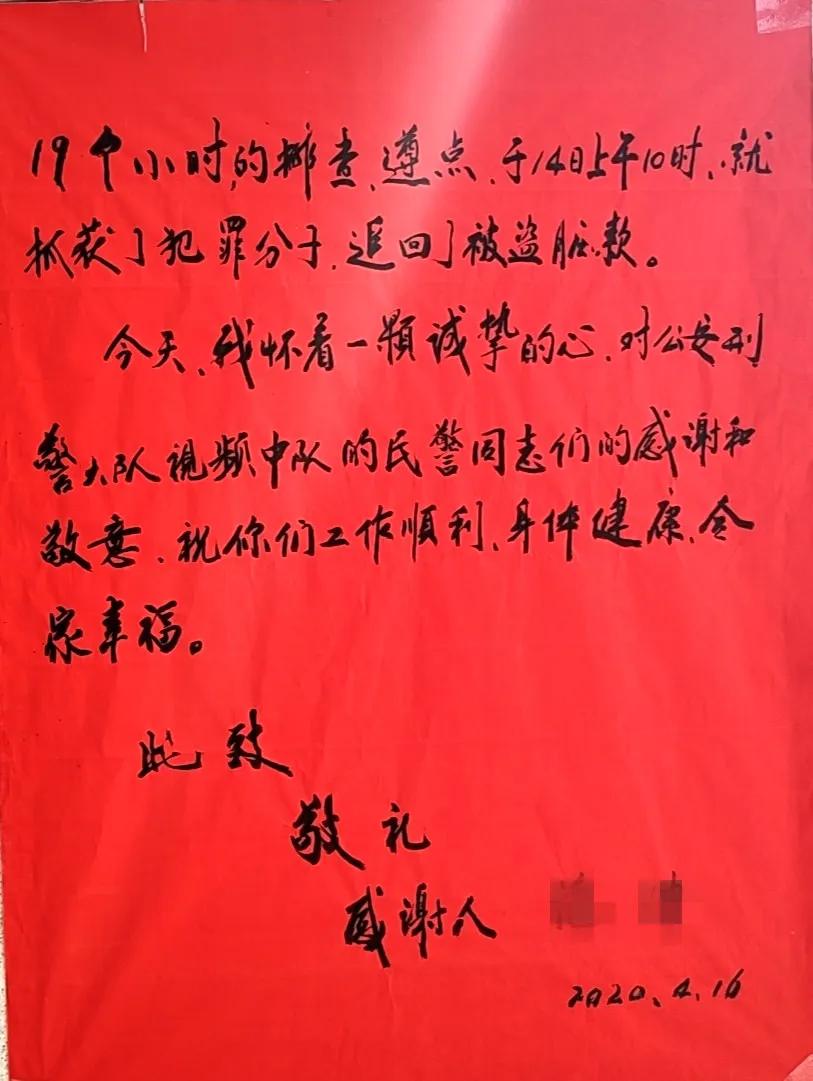 19个小时,的排查、遵点、于14日上午10时、就
抓获了犯罪分子,追回了被盗脏款。
今天、我怀着一颗诚挚的心、对公安刑
警大队视频中队的民警同志们的感谢和
敬意、祝你们工作順利、身体健康、全
家幸福。
此致
敬礼
感谢人
2020.4.16